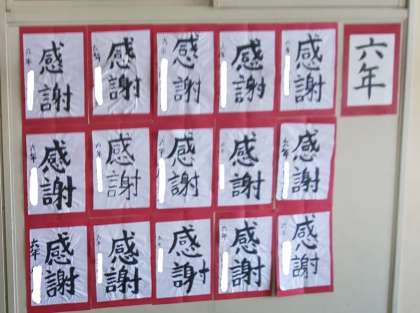 六年
感謝
六年
感謝
六年
感謝
六年
感謝
六年
感謝
六年
六年
感謝
六年
感謝
六年
感謝
六年
感謝
六年
感謝
六年
感謝
六年
感謝
六年
感謝
六年
感謝
六年
感謝